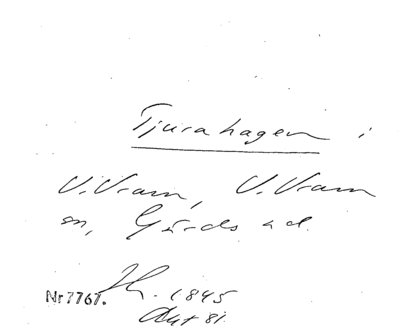 Tjurahagen i
V. Vram, V. Vram
sn, Gärds hd.
Nr 7767. 1845
Akt 81.